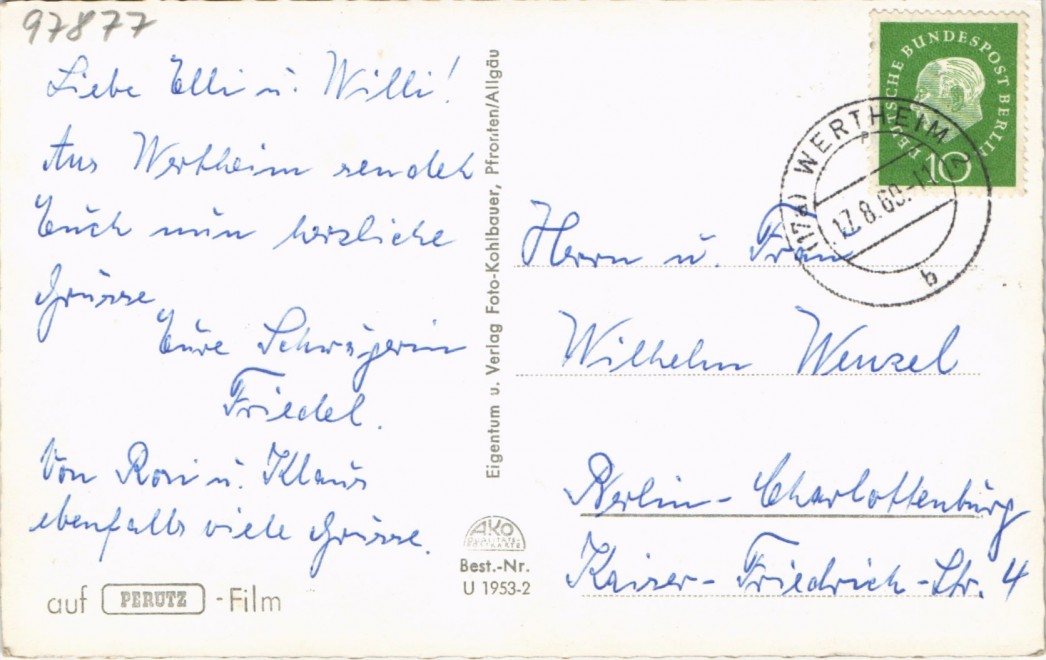 97877
Liebe Elli u. Willi!
Aus Wertheim sendet
Euch nun herzliche
Grüsse
Eure Schwägerin
Friedel.
Von Rosi u. Klaus
ebenfalls viele Grüsse.
auf PERUTZ -Film
Eigentum u. Verlag Foto-Kohlbauer, Pfronten/Allgäu
AKO
QUALITÄTS-
POSTKARTE
Best.-Nr.
U 1953-2
DEUTSCHE BUNDESPOST BERLIN
10
WERTHEIM 2
17.8.60.-11
b
Herrn u. Frau
Wilhelm Wenzel
Berlin-Charlottenburg
Kaiser-Friedrich-Str. 4